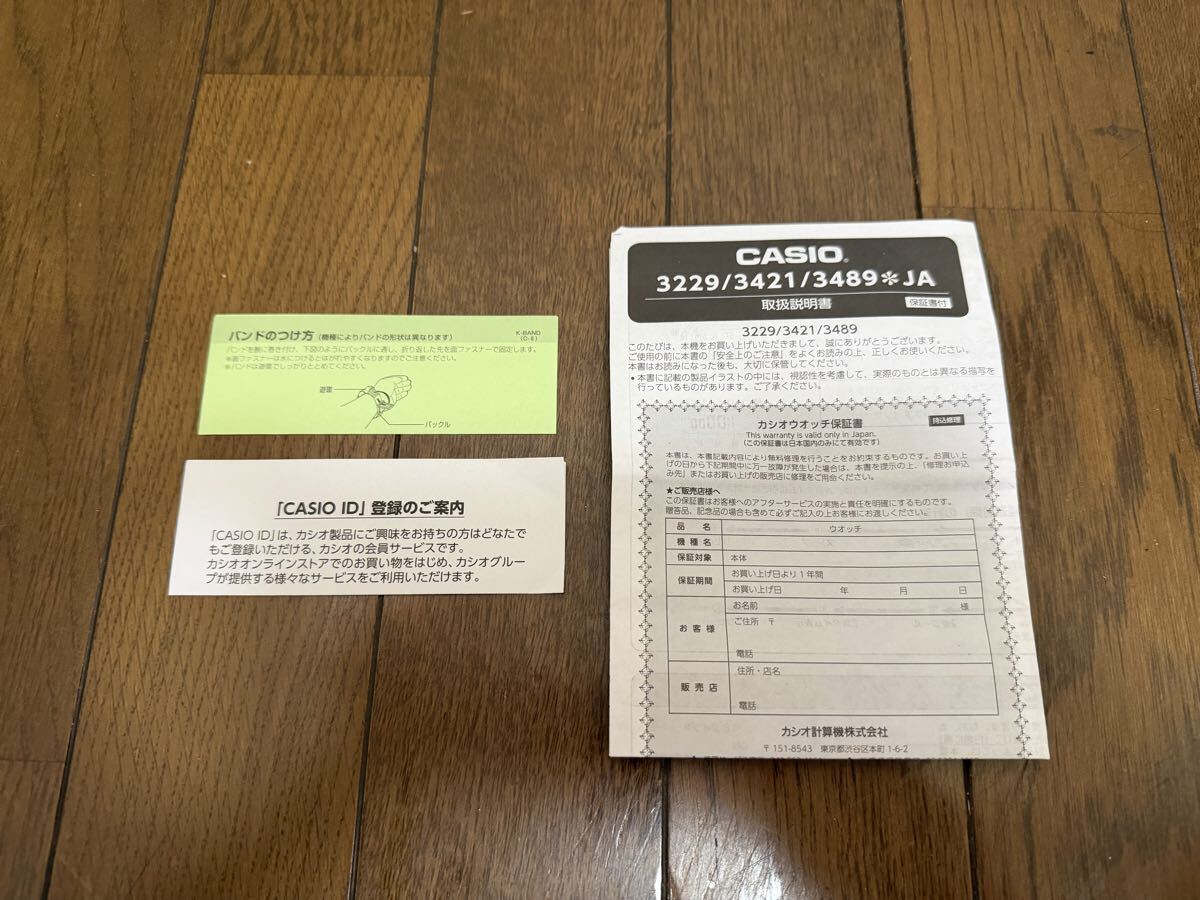 バンドのつけ方(機種によりバンドの形状は異なります)
K-BAND
バンドを腕に巻き付け、下図のようにバックルに通し、折り返した先を面ファスナーで固定します。
※面ファスナーは水につけるとはがれやすくなりますのでご注意ください。
※バンドは遊環でしっかりととめてください。
遊環
バックル
「CASIO ID」登録のご案内
「CASIO ID」は、カシオ製品にご興味をお持ちの方はどなたで
もご登録いただける、カシオの会員サービスです。
カシオオンラインストアでのお買い物をはじめ、カシオグルー
プが提供する様々なサービスをご利用いただけます。
CASIO®
3229/3421/3489✽JA
取扱説明書
保証書付
3229/3421/3489
このたびは、本機をお買い上げいただきまして、誠にありがとうございます。
ご使用の前に本書の「安全上のご注意」をよくお読みの上、正しくお使いください。
本書はお読みになった後も、大切に保管してください。
• 本書に記載の製品イラストの中には、視認性を考慮して、実際のものとは異なる描写を
行っているものがあります。ご了承ください。
カシオウオッチ保証書
持込修理
This warranty is valid only in Japan.
(この保証書は日本国内のみにて有効です)
本書は、本書記載内容により無料修理を行うことをお約束するものです。お買い上
げの日から下記期間中に万一故障が発生した場合は、本書を提示の上、「修理お申込
み先」またはお買い上げの販売店に修理をご用命ください。
★ご販売店様へ
この保証書はお客様へのアフターサービスの実施と責任を明確にするものです。
贈答品、記念品の場合も含めて必ずご記入の上お客様にお渡しください。
品 名 ウオッチ
機 種 名
保証対象 本体
保証期間 お買い上げ日より1年間
お買い上げ日 年 月 日
お 客 様 お名前 様
ご住所 〒
電話
販 売 店 住所・店名
電話
カシオ計算機株式会社
〒151-8543 東京都渋谷区本町1-6-2